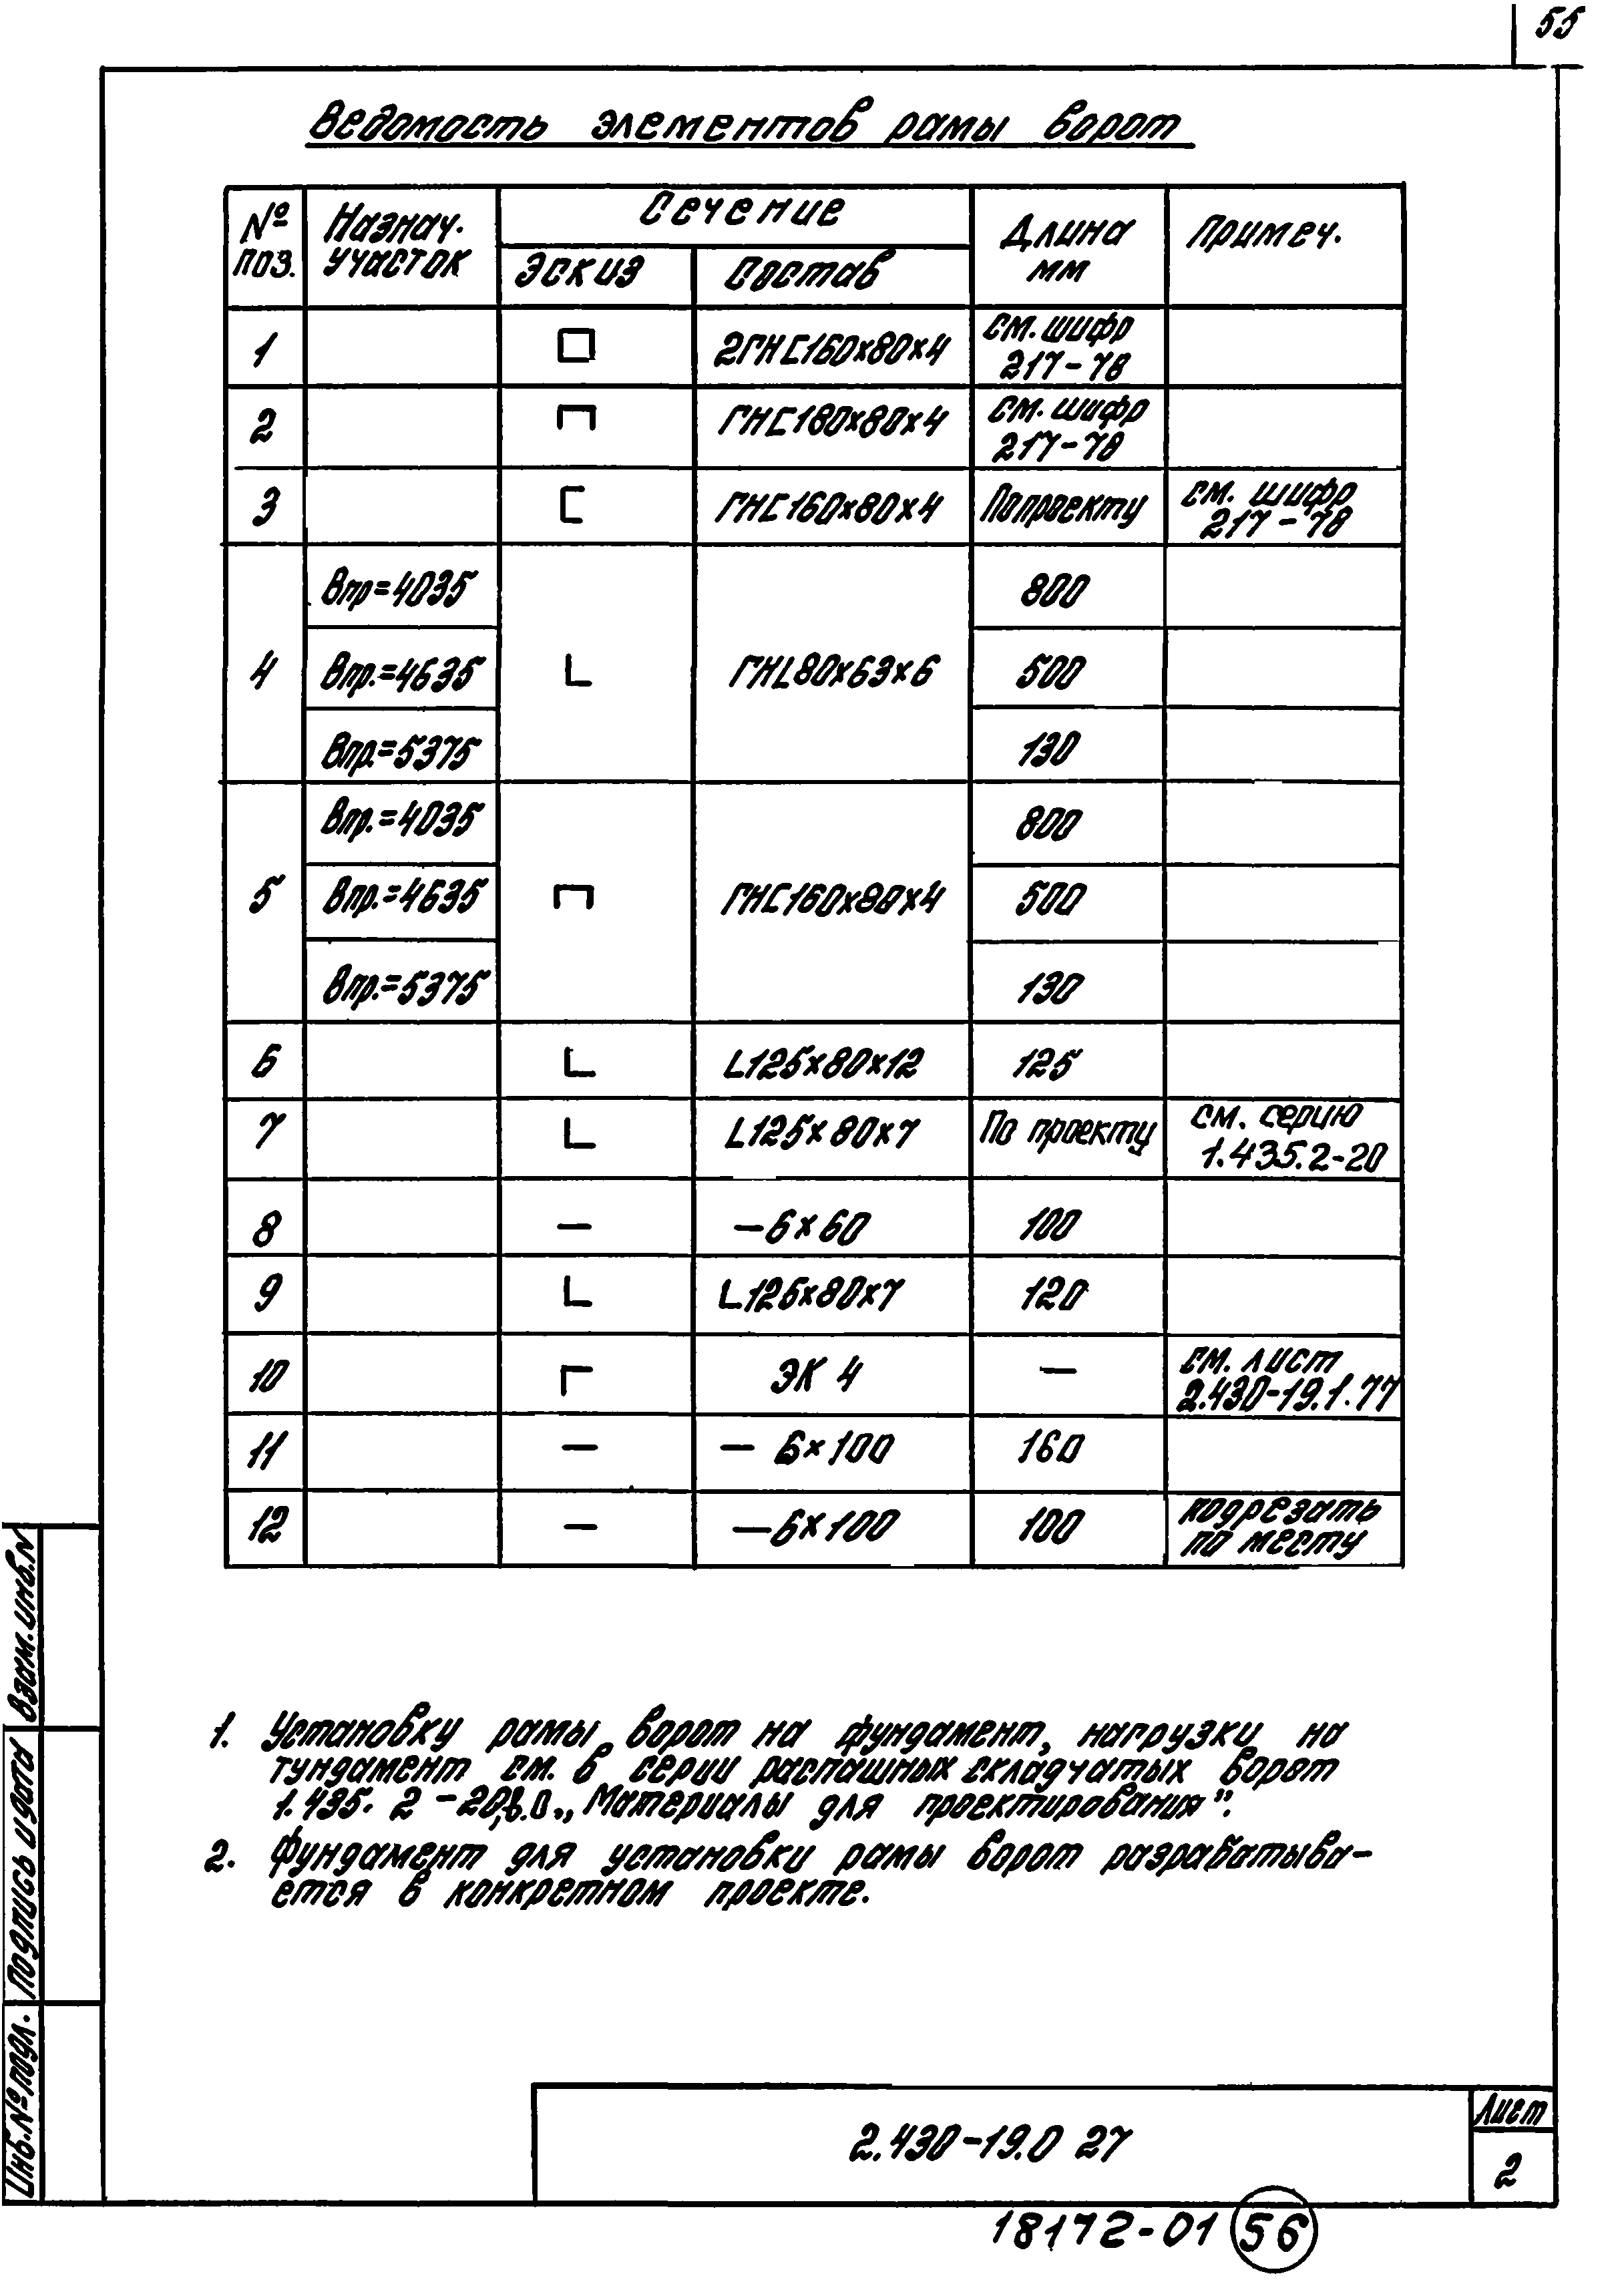 55
Ведомость элементов рамы ворот
№ поз.
Назнач. участок
Сечение
Эскиз
Состав
Длина мм
Примеч.
1 2ГНС160х80х4 см. шифр 217-78
2 ГНС180х80х4 см. шифр 217-78
3 ГНС160х80х4 По проекту см. шифр 217-78
4 Впр=4035 ГНL80х63х6 800
Впр.=4635 500
Впр.=5375 130
5 Впр.=4035 ГНС160х80х4 800
Впр.=4635 500
Впр.=5375 130
6 L125х80х12 125
7 L125х80х7 По проекту см. серию 1.435.2-20
8 — —6х60 100
9 L125х80х7 120
10 ЭК 4 — см. лист 2.430-19.1.77
11 — — 6х100 160
12 — —6х100 100 подрезать по месту
1. Установку рамы ворот на фундамент, нагрузки на
тундамент см. в серии распашных складчатых ворот
1.435.2-20, в.0 „Материалы для проектирования".
2. Фундамент для установки рамы ворот разрабатыва-
ется в конкретном проекте.
Взам. инв. N
Подпись и дата
Инв. № подл.
2.430-19.0 27
Лист
2
18172-01 56